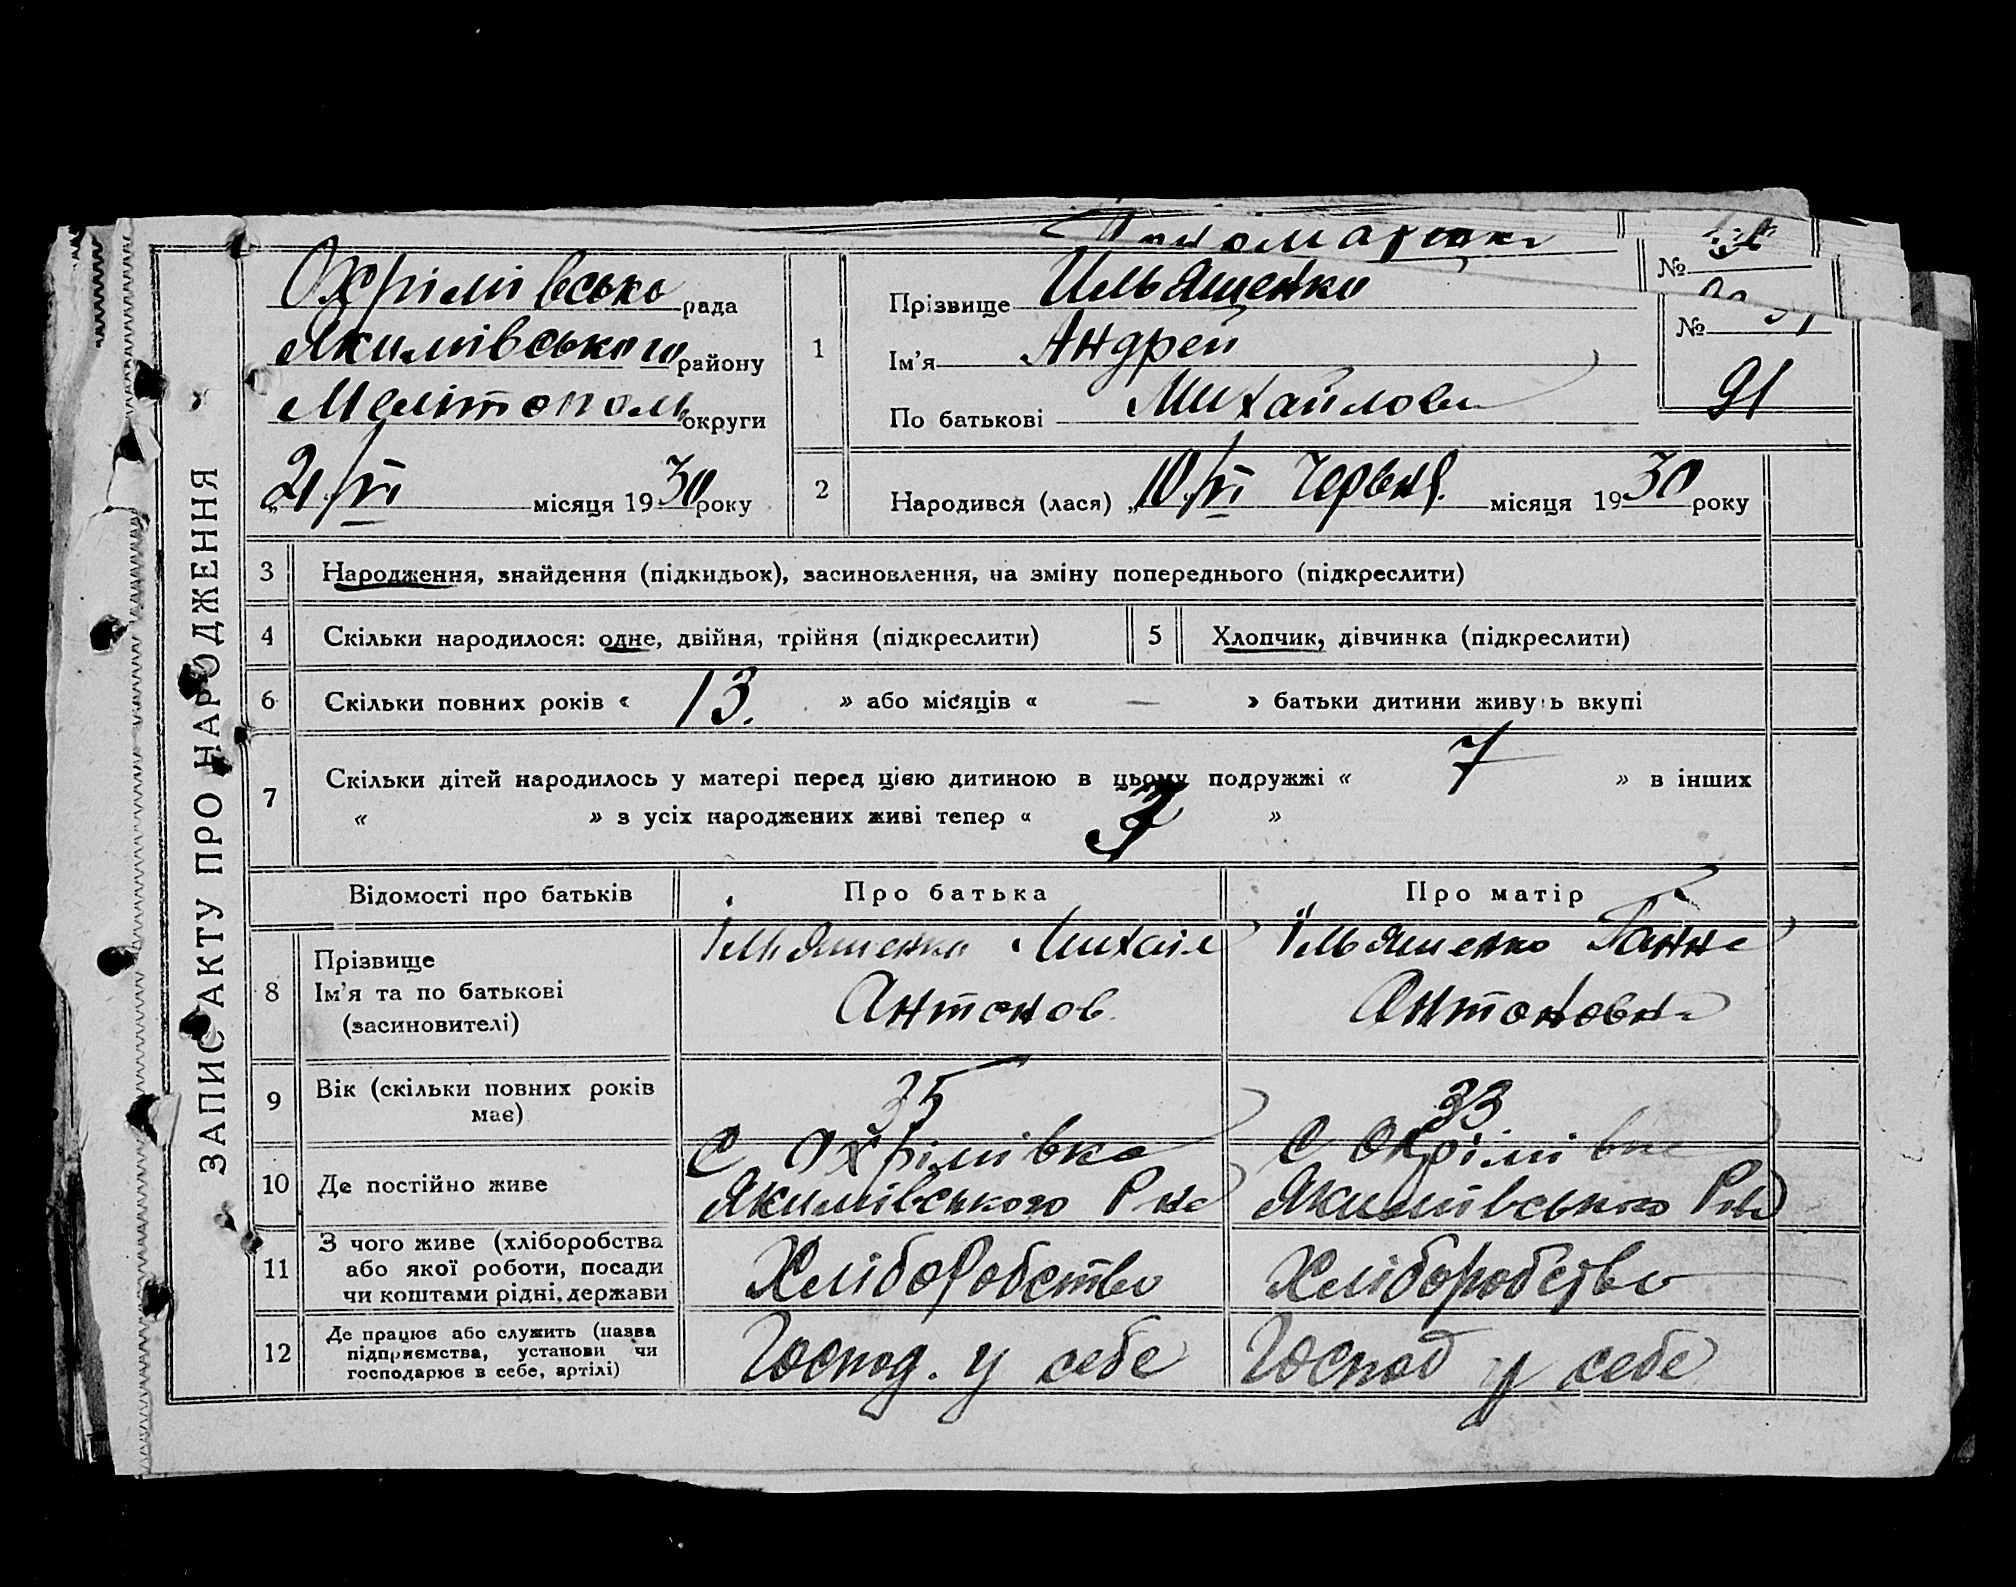 ЗАПИС АКТУ ПРО НАРОДЖЕННЯ
Охрімівсько рада
Якимівського району
Мелітополь округи
„21/VI місяця 1930 року
1
Прізвище Ильященко
Ім'я Андрей
По батькові Михайлови
№
№
91
2
Народився (лася) „10/VI Червня місяця 1930 року
3 Народження, знайдення (підкидьок), засиновлення, на зміну попереднього (підкреслити)
4 Скільки народилося: одне, двійня, трійня (підкреслити)
5 Хлопчик, дівчинка (підкреслити)
6 Скільки повних років « 13. » або місяців « — » батьки дитини живуть вкупі
7 Скільки дітей народилось у матері перед цією дитиною в цьому подружжі « 7 » в інших
« » з усіх народжених живі тепер « »
Відомості про батьків
Про батька
Про матір
8 Прізвище
Ім'я та по батькові
(засиновителі)
Ільященко Михаіл
Антонов
Ільященко Ганна
Антоновна
9 Вік (скільки повних років
має)
35
33
10 Де постійно живе
С Охрімівка
Якимівського Р на
С Охрімівка
Якимівського Р на
11 З чого живе (хліборобства
або якої роботи, посади
чи коштами рідні, держави
Хліборобство
Хліборобство
12 Де працює або служить (назва
підприємства, установи чи
господарює в себе, артілі)
Господ. у себе
Господ у себе